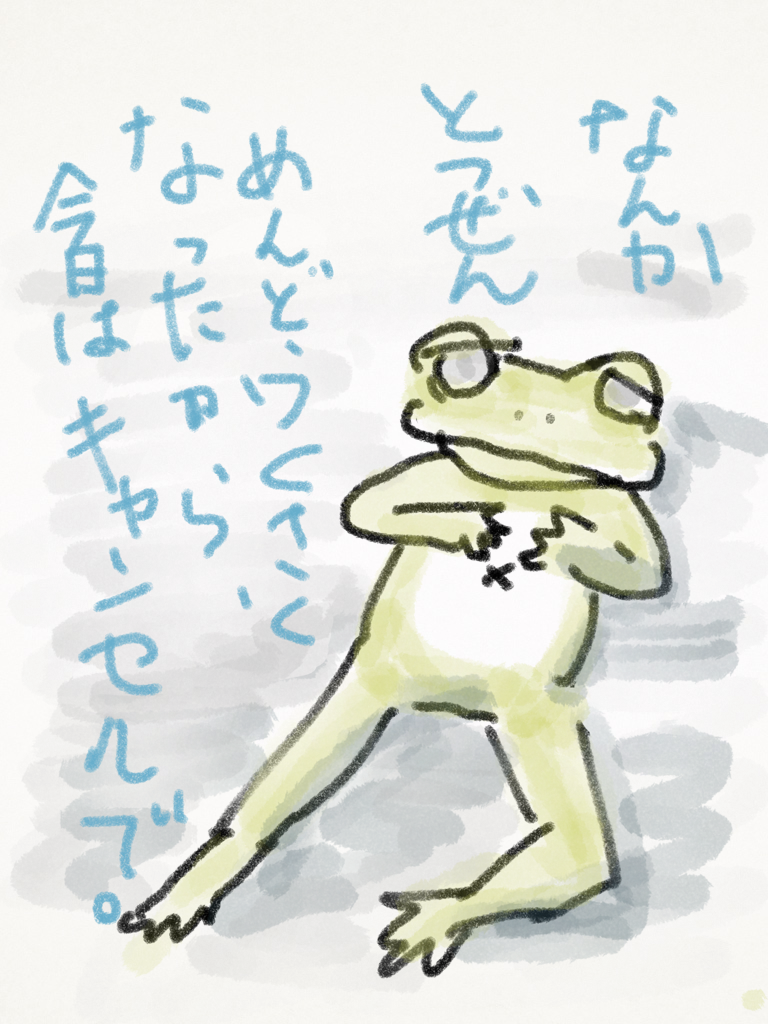 なんか
とつぜん
めんどうくさく
なったから、
今日はキャンセルで。